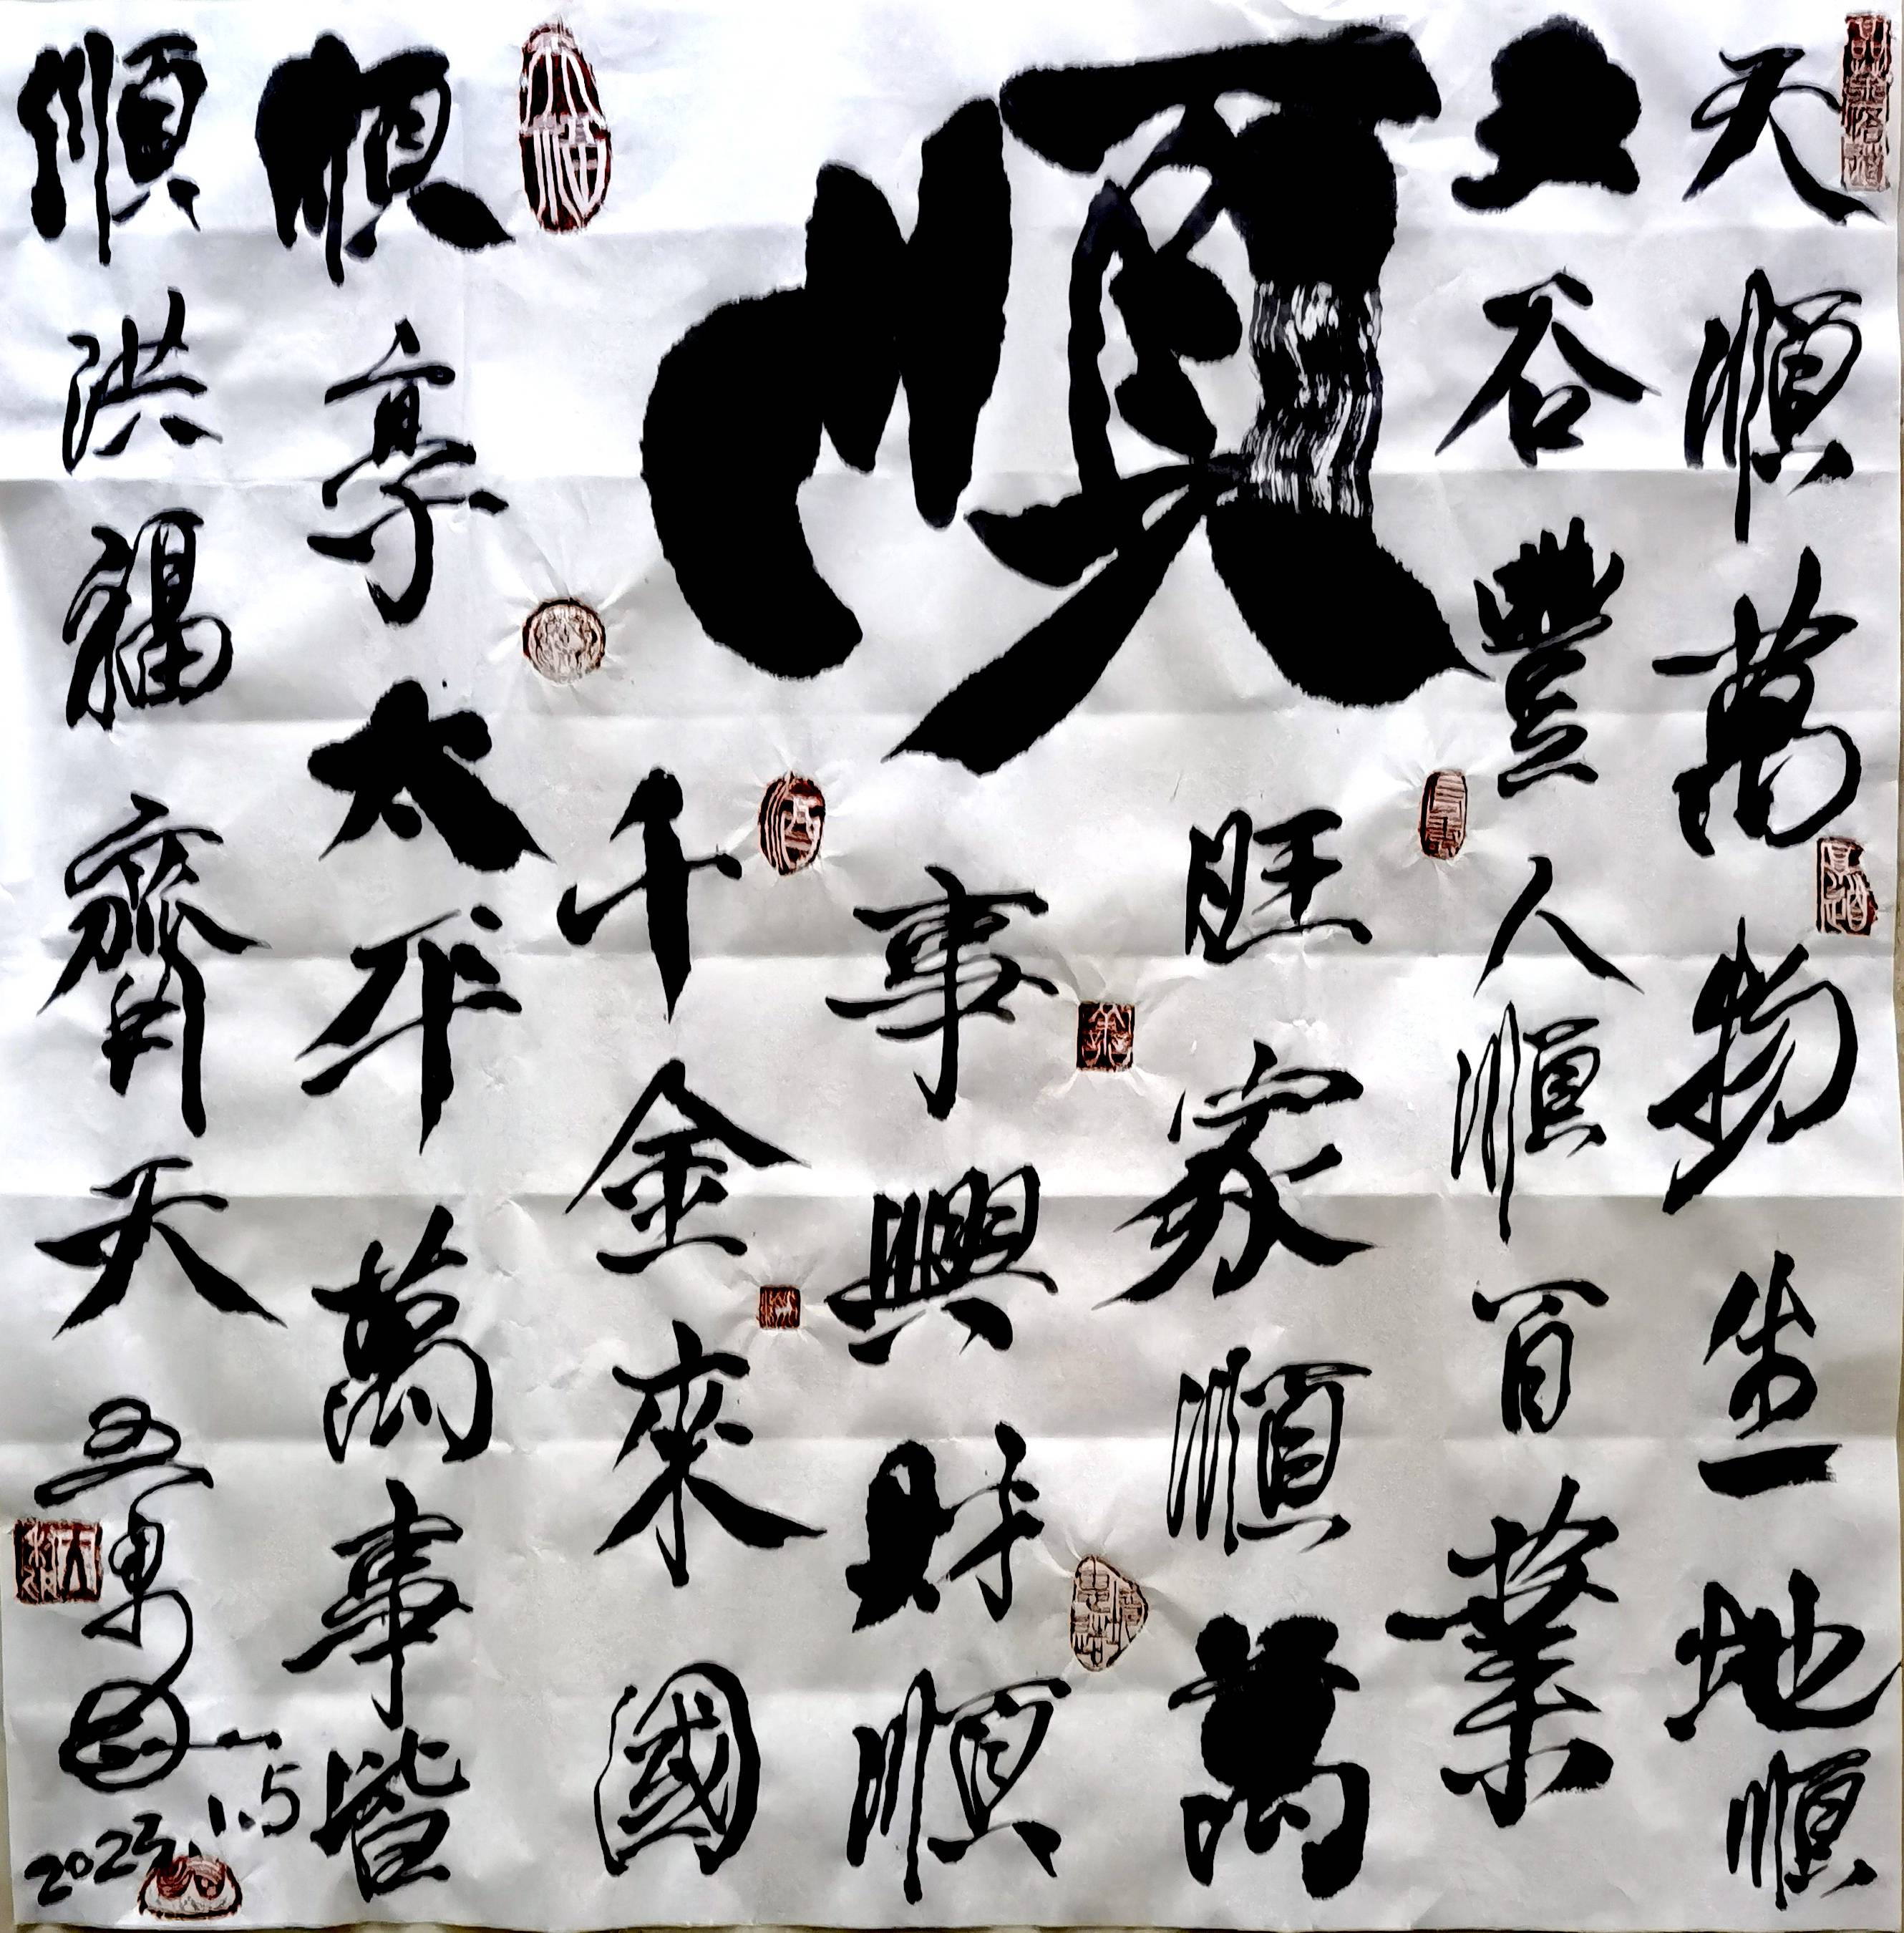 順
天順萬物生地順
五谷豐人順百業
旺家順萬
事興財順
千金來國
順享太平萬事皆
順洪福齊天
2023.1.5